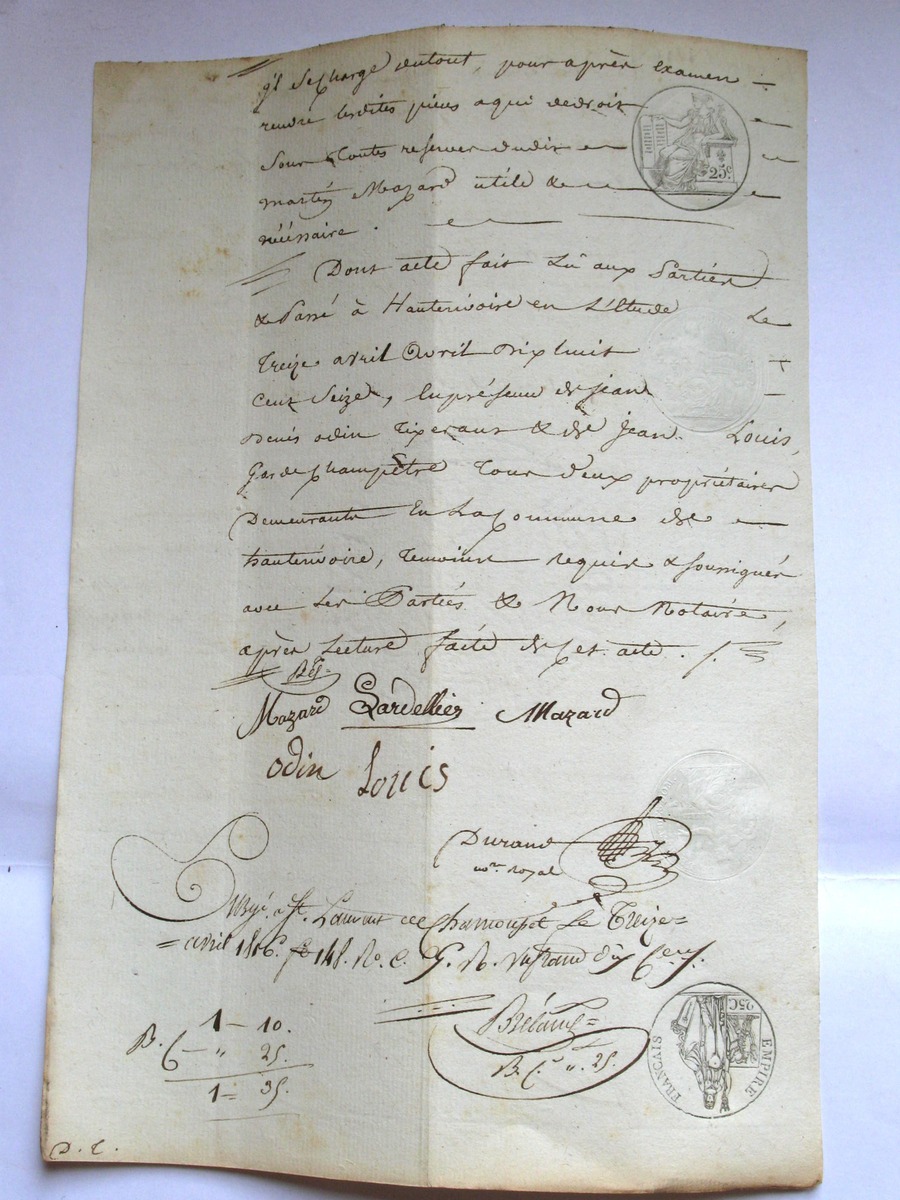 q'l se charge du tout, pour après examen
rendre lesdites pièces a qui de droit
Sous toutes reserves dudit
martin Mazard utile &
nécéssaire.
25c.
Dont acte fait Lû aux Parties
& Passé à Hauterivoire en L'Etude Le
Treize avril dix huit
Cent Seize, En présence de Jean
Denis odin Tixerant & de Jean Louis,
Garde champêtre Tous deux propriétaires
Demeurants En La Commune de
hauterivoire, Temoins requis & soussignés
avec Les Parties & Nous Notaire,
après Lecture faite de cet acte.
Mazard Lardellier Mazard
odin Louis
Durand
nore Royal
à St. Laurent de Chamousset Le Treize
avril 1816. fo 148. Ro. C.
1 — 10.
B. C — " 25.
1 = 35.
B. C. " 25.
25C
EMPIRE FRANÇAIS
D. T.